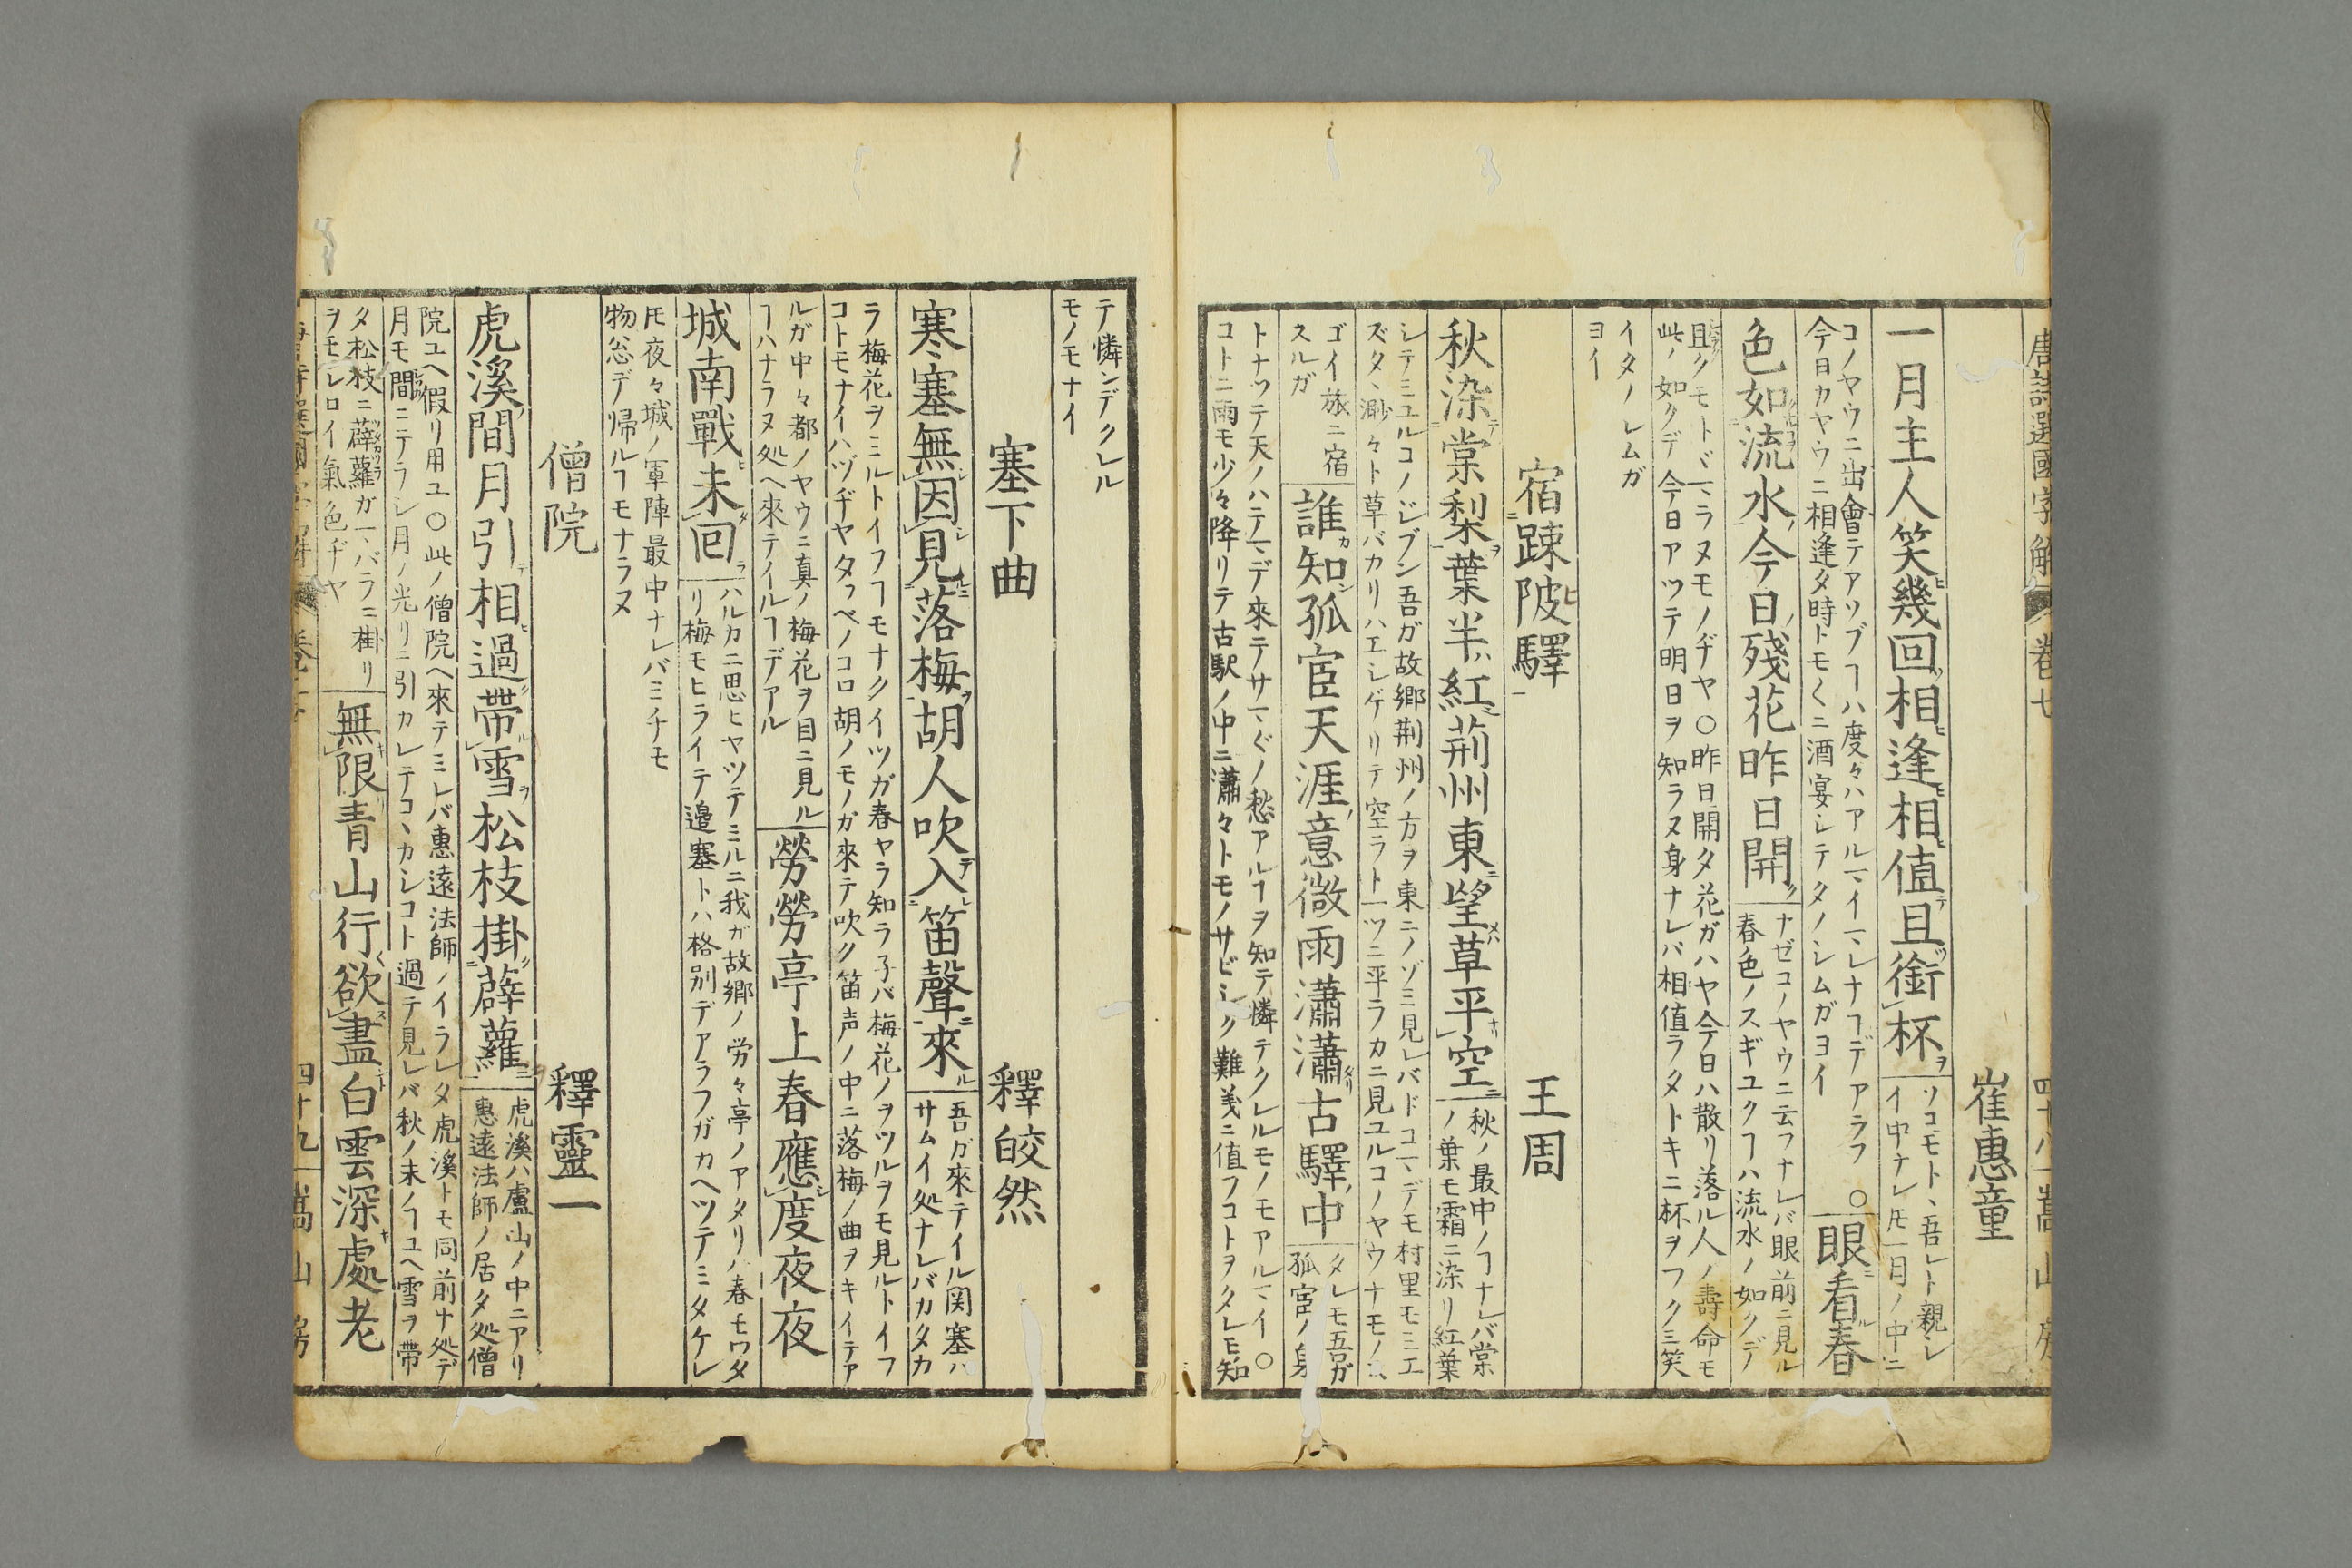 唐詩選國字解 卷七 四十八 嵩山房
崔惠童
一月主人笑幾回相逢相值且銜杯
ソコモト、吾レト親シ
イ中ナレ𪜈一月ノ中ニ
コノヤウニ出會テアソブヿハ度々ハアルマイマレナヿデアラフ ○
今日カヤウニ相逢タ時トモ〱ニ酒宴シテタノシムガヨイ
眼看春
色如流水今日殘花昨日開
ナゼコノヤウニ云フナレバ眼前ニ見ル
春色ノスギユクヿハ流水ノ如クデ
且クモトヾマラヌモノヂヤ○昨日開タ花ガハヤ今日ハ散リ落ル人ノ壽命モ
此ノ如クデ今日アツテ明日ヲ知ラヌ身ナレバ相值ラタトキニ杯ヲフクミ笑
イタノシムガ
ヨイ
宿踈陂驛 王周
秋染棠梨葉半紅荊州東望草平空
秋ノ最中ノヿナレバ棠
ノ葉モ霜ニ染リ紅葉
シテミユルコノジブン吾ガ故鄉荊州ノ方ヲ東ニノゾミ見レバドコマデモ村里モミエ
ズタヾ渺々ト草バカリハエシゲリテ空ラト一ツニ平ラカニ見ユルコノヤウナモノ
ゴイ旅ニ宿
スルガ
誰知孤宦天涯意微雨瀟瀟古驛中
タレモ吾ガ
孤宦ノ身
トナツテ天ノハテマデ來テサマ〲ノ愁アルヿヲ知テ憐テクレルモノモアルマイ○
コトニ雨モ少々降リテ古駅ノ中ニ瀟々トモノサビシク難義ニ値フコトヲタレモ知
テ憐ンデクレル
モノモナイ
塞下曲 釋皎然
寒塞無因見落梅胡人吹入笛聲來
吾ガ來テイル関塞ハ
サムイ処ナレバカタカ
ラ梅花ヲミルトイフヿモナクイツガ春ヤラ知ラ子バ梅花ノヲツルヲモ見ルトイフ
コトモナイハヅヂヤタフベノコロ胡ノモノガ來テ吹ク笛声ノ中ニ落梅ノ曲ヲキイテア
ルガ中々都ノヤウニ真ノ梅花ヲ目ニ見ル
ヿハナラヌ処ヘ來テイルヿデアル
勞勞亭上春應度夜夜
城南戰未回
ハルカニ思ヒヤツテミルニ我ガ故鄉ノ労々亭ノアタリハ春モワタ
リ梅モヒライテ邉塞トハ格别デアラフガカヘツテミタケレ
𪜈夜々城ノ軍陣最中ナレバミチモ
物忩デ帰ルヿモナラヌ
僧院 釋靈一
虎溪間月引相過帶雪松枝掛薜蘿
虎溪ハ盧山ノ中ニアリ
惠遠法師ノ居タ処僧
院ユヘ假リ用ユ○此ノ僧院ヘ來テミレバ惠遠法師ノイラレタ虎溪トモ同前ナ処デ
月モ間ニテラシ月ノ光リニ引カレテコヽカシコト過テ見レバ秋ノ末ノヿユヘ雪ヲ帶
タ松枝ニ薜蘿ガマバラニ掛リ
ヲモシロイ氣色ヂヤ
無限青山行欲盡白雲深處老
四十九 嵩山房